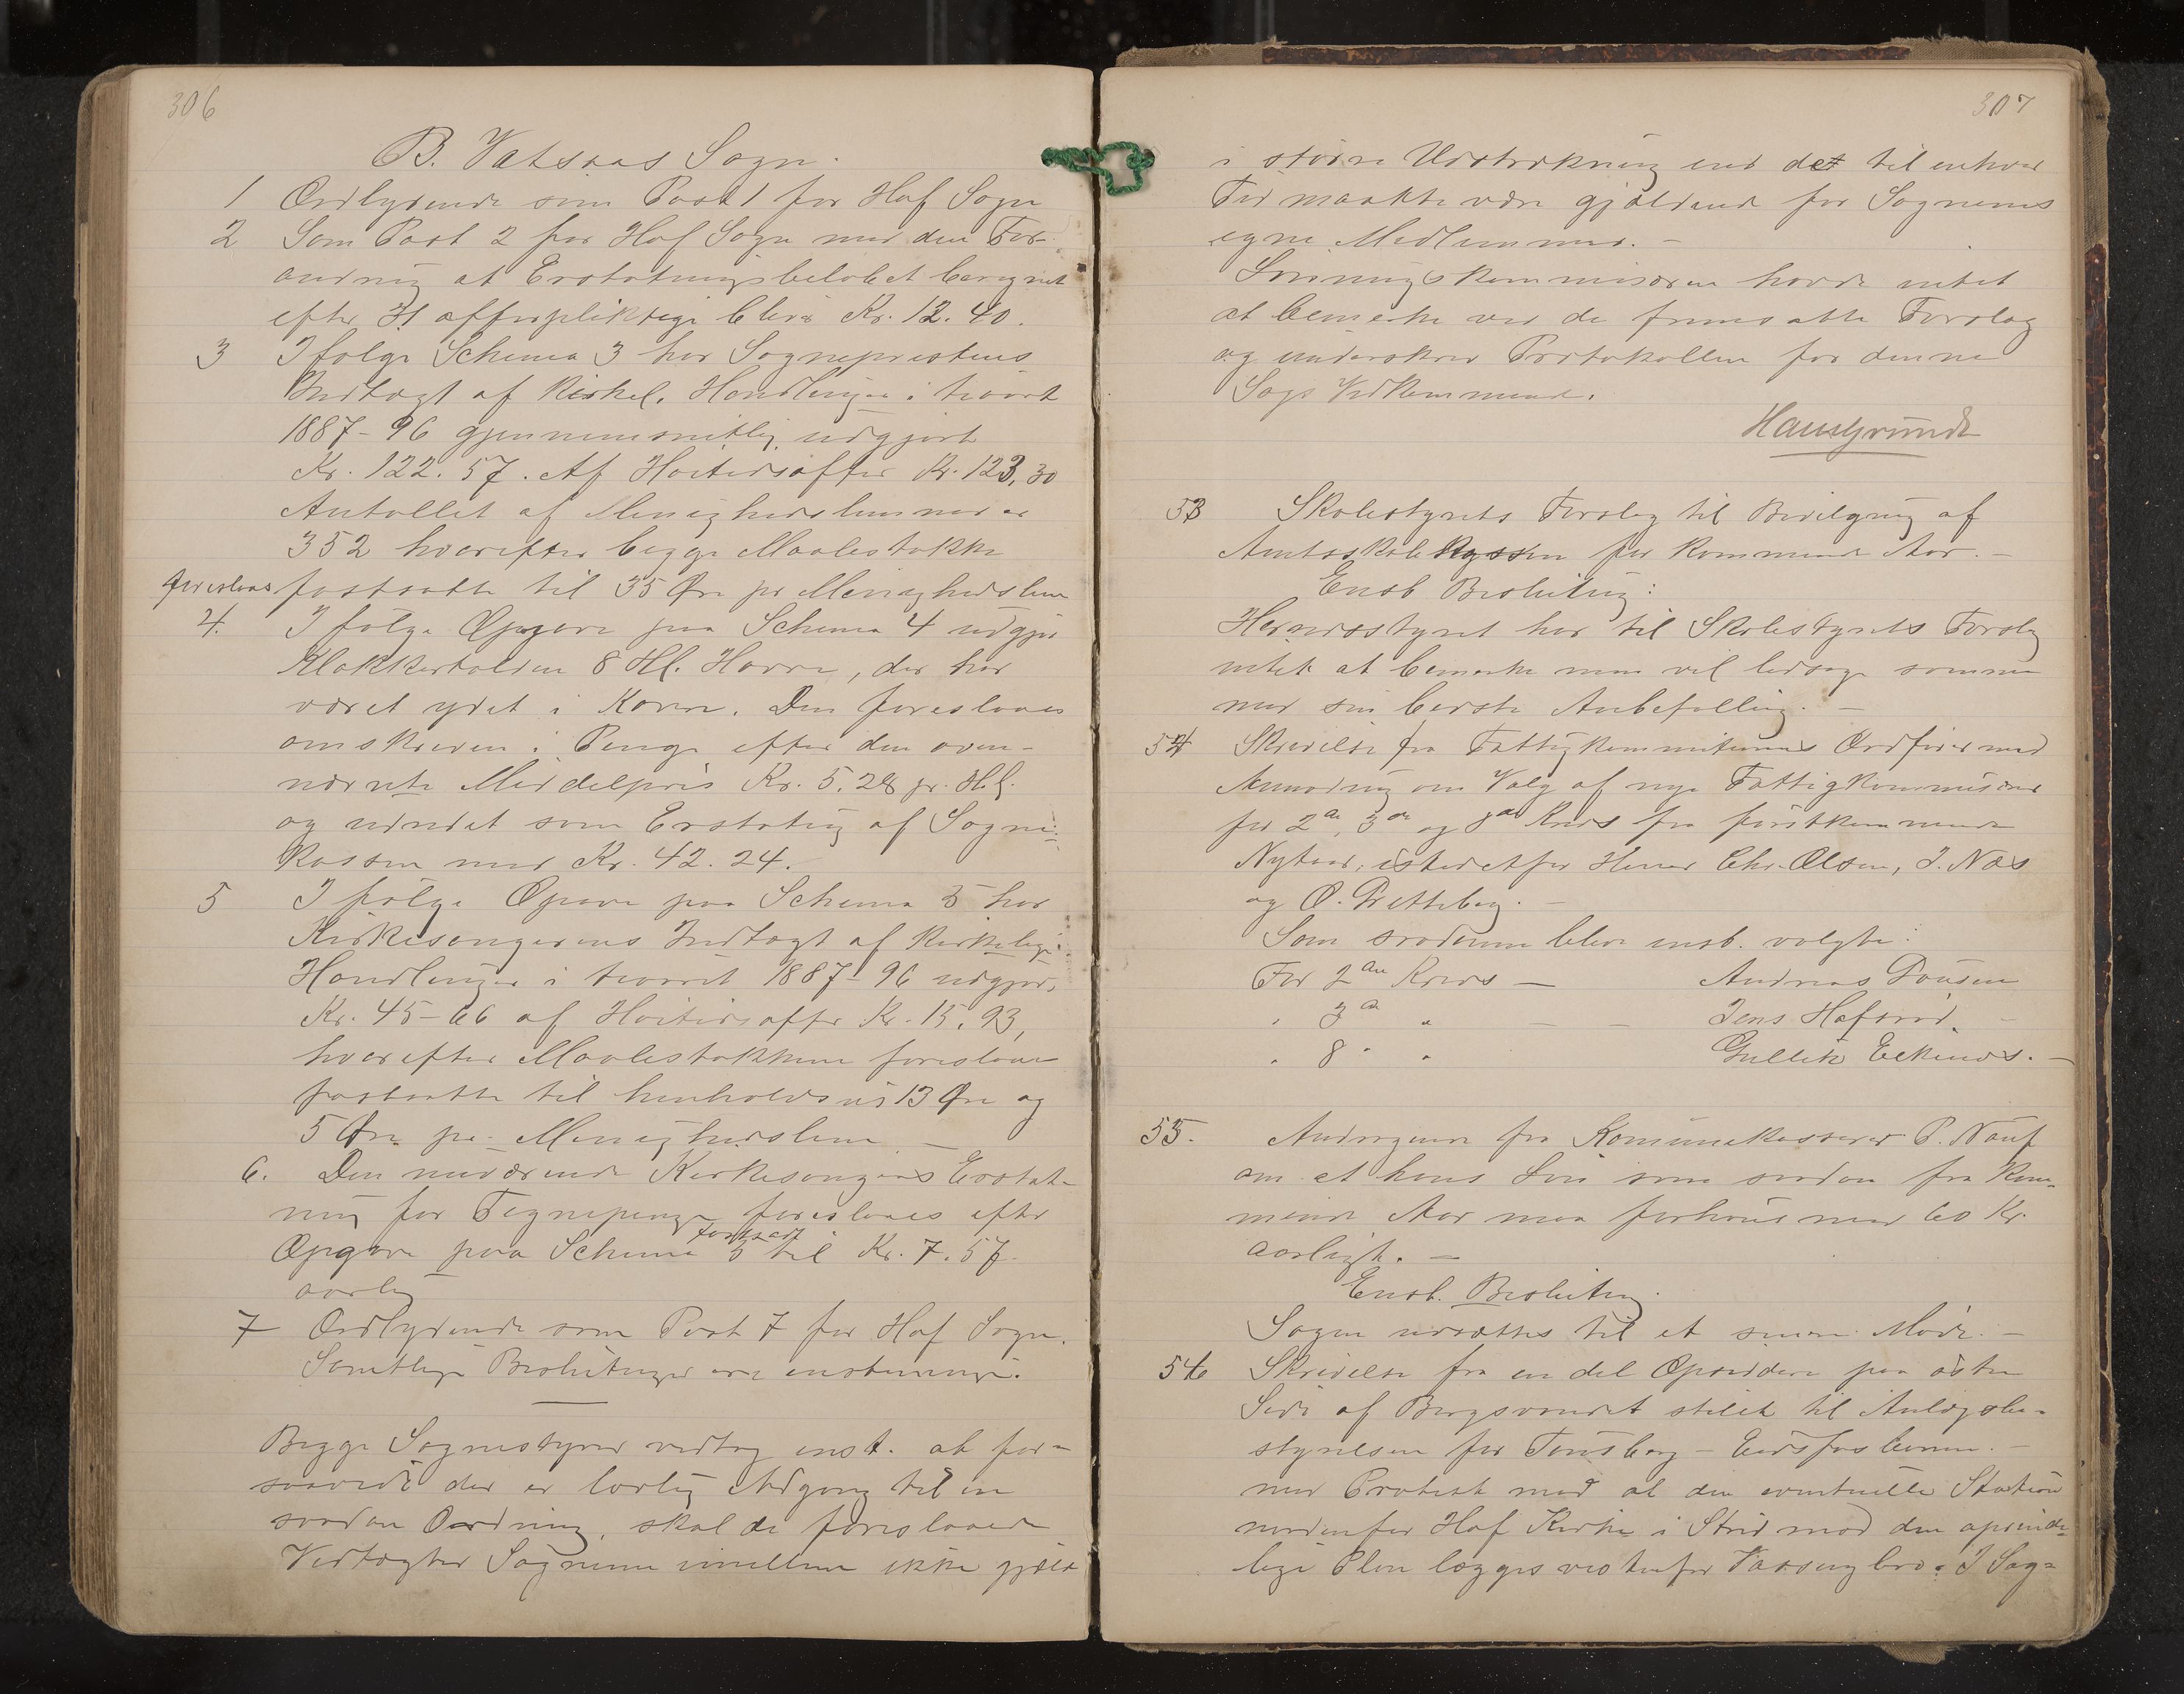 306
B. Vatsaas Sogn.
1 Ordlydende som Post 1 for Hof Sogn
2 Som Post 2 for Hof Sogn med den For-
andring at Erstatningsbeløbet beregnet
efter 31 offerpliktige blir Kr. 12.40.
3 Ifølge Schema 3 har Sogneprestens
Indtægt af Kirkel. Handlinger i tiaaret
1887-96 gjennemsnitlig udgjort
Kr. 122.57. Af Høitidsoffer Kr. 123,30
Antallet af Menighedslemmer er
352 hvorefter begge Maalestokke
foreslaaes fastsatte til 35 Øre pr Menighedslem
4. I følge Opgave paa Schema 4 udgjør
Klokkertolden 8 Hl. Havre, der har
været ydet i Korn. Den foreslaaes
omskreven i Penge efter den oven-
nævnte Middelpris Kr. 5.28 pr. Hl.
og udredet som Erstatnig af Sogne-
kassen med Kr. 42.24.
5 I følge Opgave paa Schema 5 har
Kirkesangerens Indtægt af Kirkelige
Handlinger i tiaaret 1887-96 udgjort
Kr. 45-66 af Høitidsoffer Kr. 15,93,
hvorefter Maalestokkene foreslaaes
fastsatte til henholdsvis 13 Øre og
5 Øre pr. Menighedslem —
6. Den nuværende Kirkesangers Erstat-
ning for Tegnepenge foreslaaes efter
Opgave paa Schema 5 fastsat til Kr. 7.57
aarlig
7 Ordlydende som Post 7 for Hof Sogn.
Samtlige Beslutninger ere enstemmige.
Begge Sognestyrer vedtog enst. at for-
saavidt der er lovlig Adgang til en
saadan Ordning, skal de foreslaaede
Vedtægter Sognene imellem ikke gjælde
307
i større Udstrækning end det til enhver
Tid maatte være gjældende for Sognenes
egne Medlemmer. —
Lønningskommisæren havde intet
at bemerke ved de fremsatte Forslag
og underskrev Protokollen for denne
Sags Vedkommende.
Hans Grunde
53 Skolestyrets Forslag til Bevilgning af
Amtsskolekassen for kommende Aar. —
Enst Beslutnig:
Herredsstyret har til Skolestyrets Forslag
intet at bemerke men vil ledsage samme
med sin bedste Anbefalling. —
54 Skrivelse fra Fattigkommitionens Ordfører med
Anmodnig om Valg af nye Fattigkommisærer
for 2den, 3die og 8de Kreds fra førstkommende
Nytaar, istedetfor Herrer Chr. Olsen, J. Næs
og O. Pretteberg. —
Som saadanne blev enst. valgte:
For 2den Kreds — Andreas Pousen
" 3die " — — Jens Hafsrød. —
" 8 " " Gullik Eikenæs. —
55. Andragende fra Komunekasserer P. Nauf
om at hans Løn som saadan fra kom-
mende Aar maa forhøies med 60 Kr.
aarligt. —
Enst. Beslutnig.
Sagen udsættes til et senere Møde. —
56 Skrivelse fra en del Opsiddere paa østre
Side af Bergsvandet stilet til Anlægsbe-
styrelsen for Tønsberg - Eidsfosbanen. —
med Protest mod at den eventuelle Station
nordenfor Hof Kirke i Strid mod den oprinde-
lige Plan lægges vestenfor Vassengbro. I Sag-